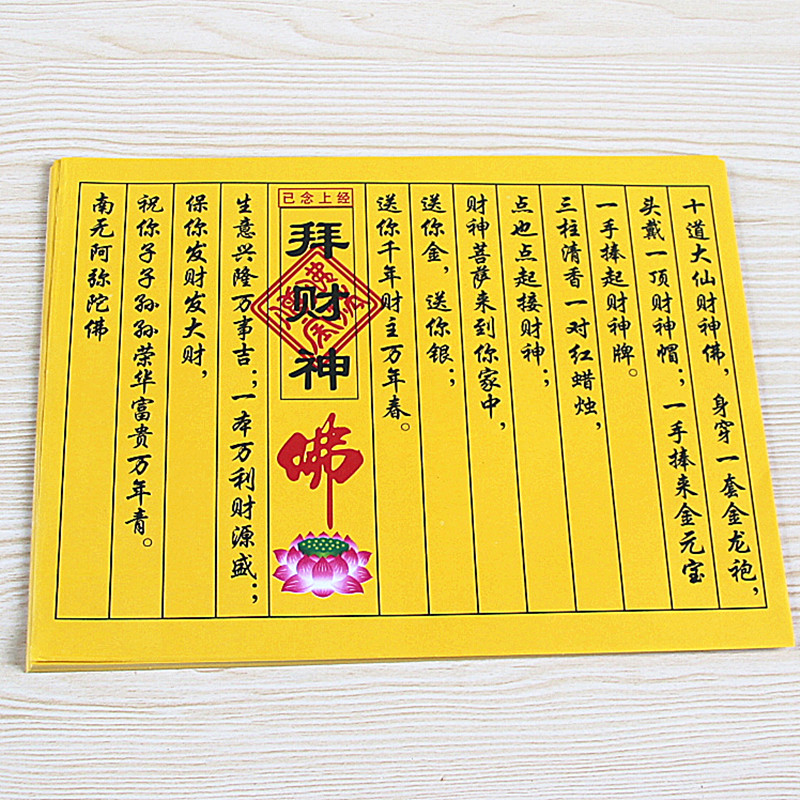 十道大仙财神佛，身穿一套金龙袍，
头戴一顶财神帽；，一手捧来金元宝
一手捧起财神牌。
三柱清香一对红蜡烛，
点也点起接财神；，
财神菩萨来到你家中，
送你金，送你银；，
送你千年财主万年春。
已念上经
拜财神
佛
生意兴隆万事吉；，一本万利财源盛；，
保你发财发大财，
祝你子子孙孙荣华富贵万年青。
南无阿弥陀佛